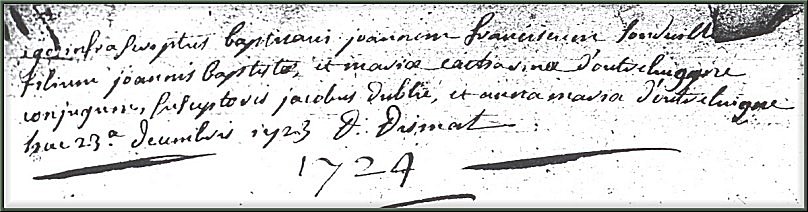 ego infra scriptus baptisavi joannem franciscum
filium joannis baptistæ, et mariæ catharinæ d'outreluigne
conjugum, susceptores jacobus dublié, et anna maria d'outreluigne
hac 23.a decembris 1723 D. Dismat
1724